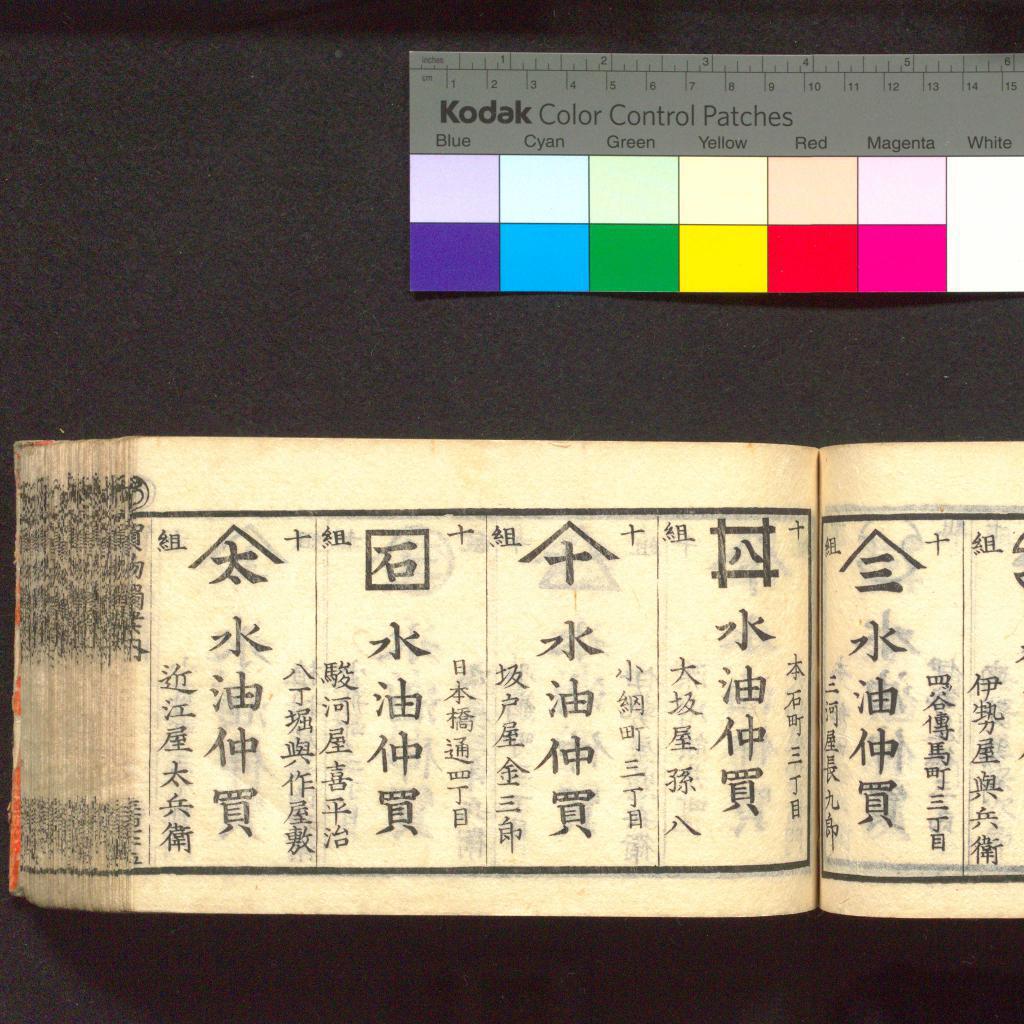 inches 1 2 3 4 5 6
cm 1 2 3 4 5 6 7 8 9 10 11 12 13 14 15
Kodak Color Control Patches
Blue Cyan Green Yellow Red Magenta White
組
伊勢屋與兵衛
十
四谷傳馬町三丁目
三
水油仲買
組
三河屋長九郎
十
本石町三丁目
八
水油仲買
組
大坂屋孫八
十
小網町三丁目
十
水油仲買
組
坂戸屋金三郎
十
日本橋通四丁目
石
水油仲買
組
駿河屋喜平治
十
八丁堀與作屋敷
太
水油仲買
組
近江屋太兵衛